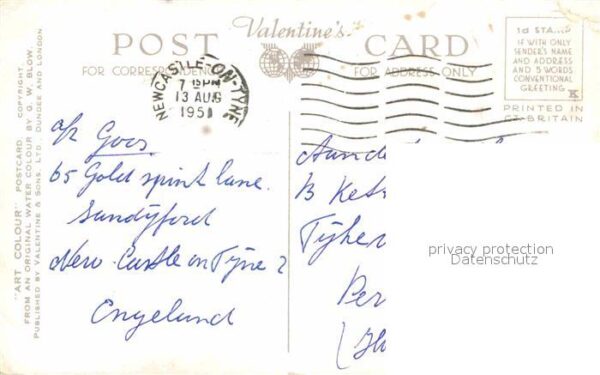 POST Valentine's CARD
FOR CORRESPONDENCE
FOR ADDRESS ONLY
1d STA
IF WITH ONLY
SENDER'S NAME
AND ADDRESS
AND 5 WORDS
CONVENTIONAL
GREETING
PRINTED IN
GT. BRITAIN
NEWCASTLE-ON-TYNE
7 15PM
13 AUG
1951
"ART COLOUR" POSTCARD. COPYRIGHT.
FROM AN ORIGINAL WATER COLOUR BY G. W. BLOW.
PUBLISHED BY VALENTINE & SONS, LTD., DUNDEE AND LONDON
a/z Goos
65 Gold spink lane.
Sandyford
New Castle on Tyne 2
Engeland
B Ket
Per
privacy protection
Datenschutz